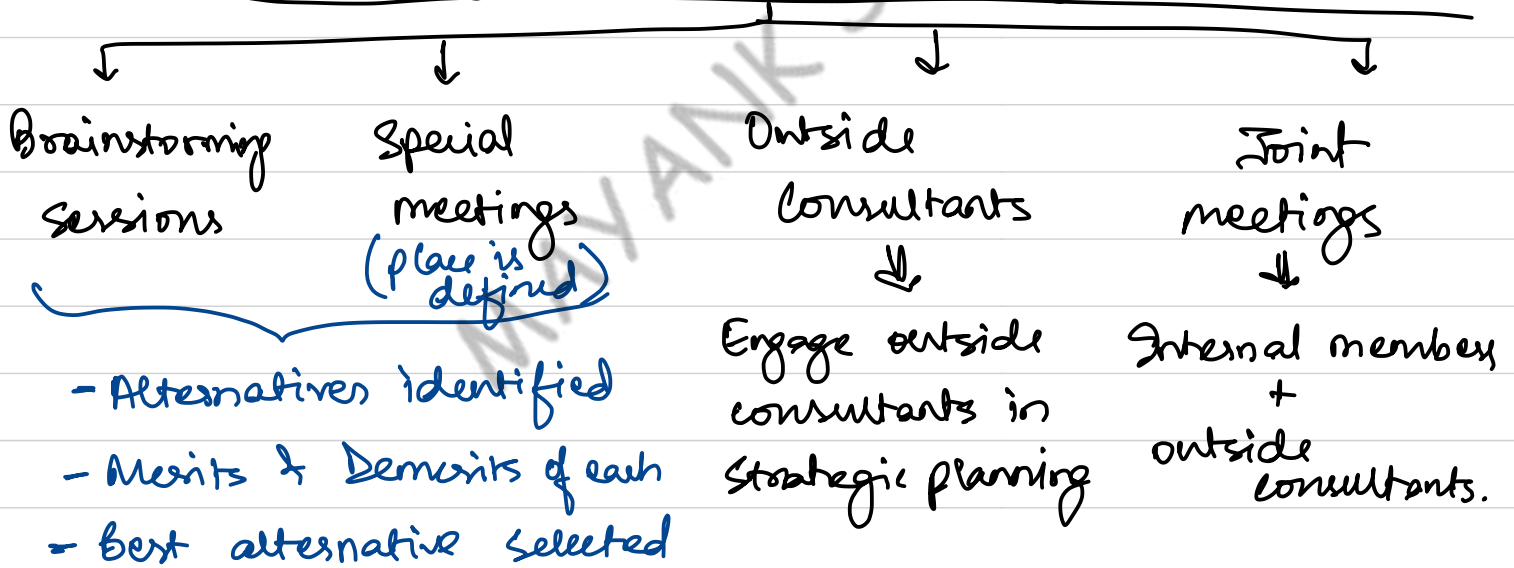 Brainstorming
sessions
Special
meetings
(place is
defined)
- Alternatives identified
- Merits & Demerits of each
- Best alternative selected
Outside
Consultants
Engage outside
consultants in
Strategic planning
Joint
meetings
Internal members
+
outside
consultants.
MAYANK